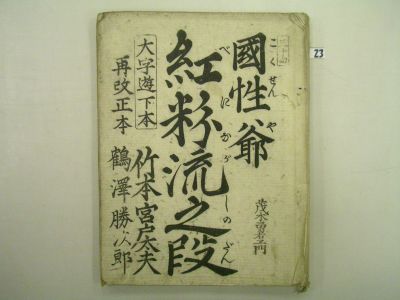 國性爺
こくせんや
紅粉流之段
べにながしのだん
大字遊下本
再改正本
竹本宮戸太夫
鶴澤勝次郎
23